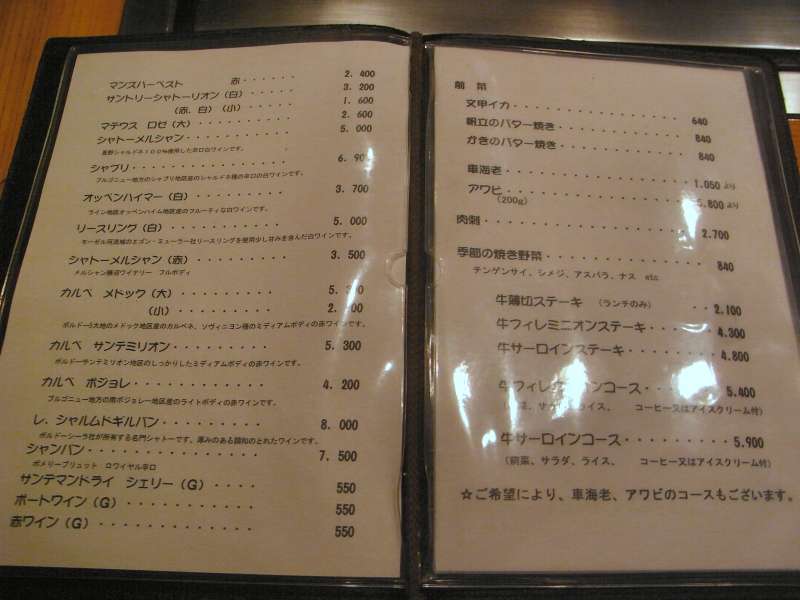 マンズハーベスト　赤・・・・・・2.400
サントリーシャトーリオン（白）・・・・・3.200
（赤、白）（小）・・・・・1.600
マテウス ロゼ（大）・・・・・・・・・・2.600
シャトーメルシャン・・・・・・・・・・・5.000
長野シャルドネ100%使用した辛口白ワインです。
シャブリ・・・・・・・・・・・・・・・6.900
ブルゴニュー地方のシャブリ地区産のシャルドネ種の辛口の白ワインです。
オッペンハイマー（白）・・・・・・・・・・3.700
ライン地区オッペンハイム地区産のフルーティな白ワインです。
リースリング（白）・・・・・・・・・・・5.000
モーゼル河流域のエゴン・ミューラー社リースリングを使用少し甘みを含んだ白ワインです。
シャトーメルシャン（赤）・・・・・・・・・3.500
メルシャン勝沼ワイナリー フルボディ
カルベ メドック（大）・・・・・・・・・5.
（小）・・・・・・・・・2.
ボルドー5大地のメドック地区産のカルベネ、ソヴィニヨン種のミディアムボディの赤ワインです。
カルベ サンテミリオン・・・・・・・・・5.300
ボルドーサンテミリオン地区のしっかりしたミディアムボディの赤ワインです。
カルベ ボジョレ・・・・・・・・・・・・4.200
ブルゴニュー地方の南ボジョレー地区産のライトボディの赤ワインです。
レ．シャルムドギルバン・・・・・・・・・・8.000
ボルドーシーラ社が所有する名門シャトーです。厚みのある調和のとれたワインです。
シャンパン・・・・・・・・・・・・・・・7.500
ポメリーブリュット ロワイヤル辛口
サンテマンドライ シェリー（G）・・・・550
ポートワイン（G）・・・・・・・・・・・・550
赤ワイン（G）・・・・・・・・・・・・・・550
前菜
文甲イカ・・・・・・・・・・・・・・640
帆立のバター焼き・・・・・・・・・・840
かきのバター焼き・・・・・・・・・・840
車海老・・・・・・・・・・・・・・・1.050より
アワビ・・・・・・・・・・・・・・・5.800より
（200g）
肉刺・・・・・・・・・・・・・・・・2.700
季節の焼き野菜・・・・・・・・・・・840
チンゲンサイ、シメジ、アスパラ、ナス etc
牛薄切ステーキ （ランチのみ）・・2.100
牛フィレミニオンステーキ・・・・・・4.300
牛サーロインステーキ・・・・・・・・4.800
牛フィレミニオンコース・・・・・・・5.400
、サラダ、ライス、 コーヒー又はアイスクリーム付）
牛サーロインコース・・・・・・・・・5.900
（前菜、サラダ、ライス、 コーヒー又はアイスクリーム付）
☆ご希望により、車海老、アワビのコースもございます。